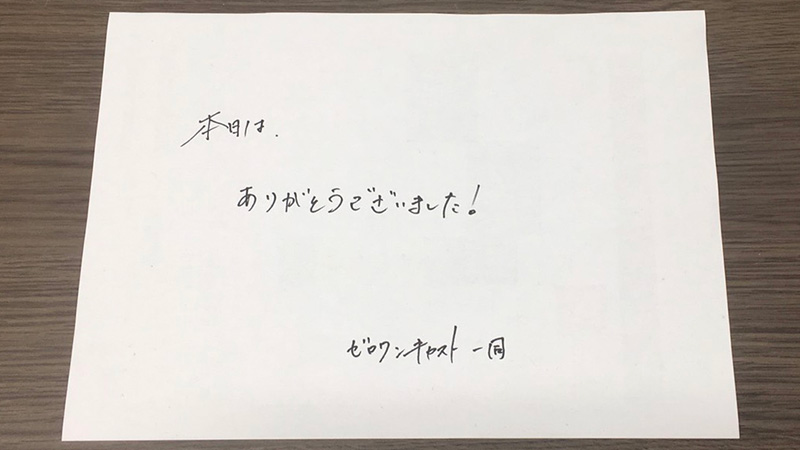 本日は、
ありがとうございました!
ゼロワンキャスト一同